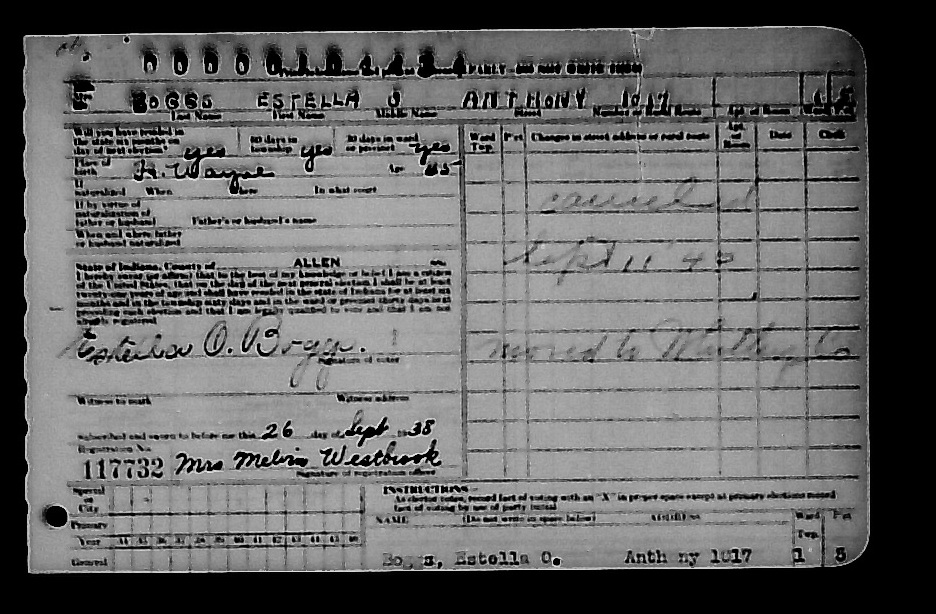 PARTY - DO NOT WRITE HERE
BOGGS ESTELLA O ANTHONY 1017 1 5
Last Name First Name Middle Name Street Number or Rural Route Apt. or Room
Will you have resided in the state six months on day of next election yes 60 days in township yes 30 days in ward or precinct yes
Ward Twp. Pct. Changes in street address or rural route Apt. or Room Date Clerk
Place of birth Ft. Wayne Age
If naturalized When Where In what court
canceled
If by virtue of naturalization of father or husband Father's or husband's name
When and where father or husband naturalized
Sept 11 40
State of Indiana, County of ALLEN ss:
I hereby swear (or affirm) that to the best of my knowledge or belief I am a citizen
of the United States, that on the day of the next general election I shall be at least
twenty-one years of age and shall have resided in the state of Indiana for at least six
months and in the township sixty days and in the ward or precinct thirty days next
preceding such election and that I am legally qualified to vote and that I am not
Estella O. Boggs.
Signature of voter
moved to Whitley Co
Witness to mark Witness address
Subscribed and sworn to before me this 26 day of Sept 1938
Registration No.
117732 Mrs Melvin Westbrook
Signature of registration officer
Special or City
Primary
Year 34 35 36 37 38 39 40 41 42 43 44 45 46
General
INSTRUCTIONS—
As elector votes, record fact of voting with an "X" in proper space except at primary elections record
fact of voting by use of party initial
NAME (Do not write in space below) ADDRESS Ward Twp. Pct.
Boggs, Estella O. Anth ny 1017 1 5